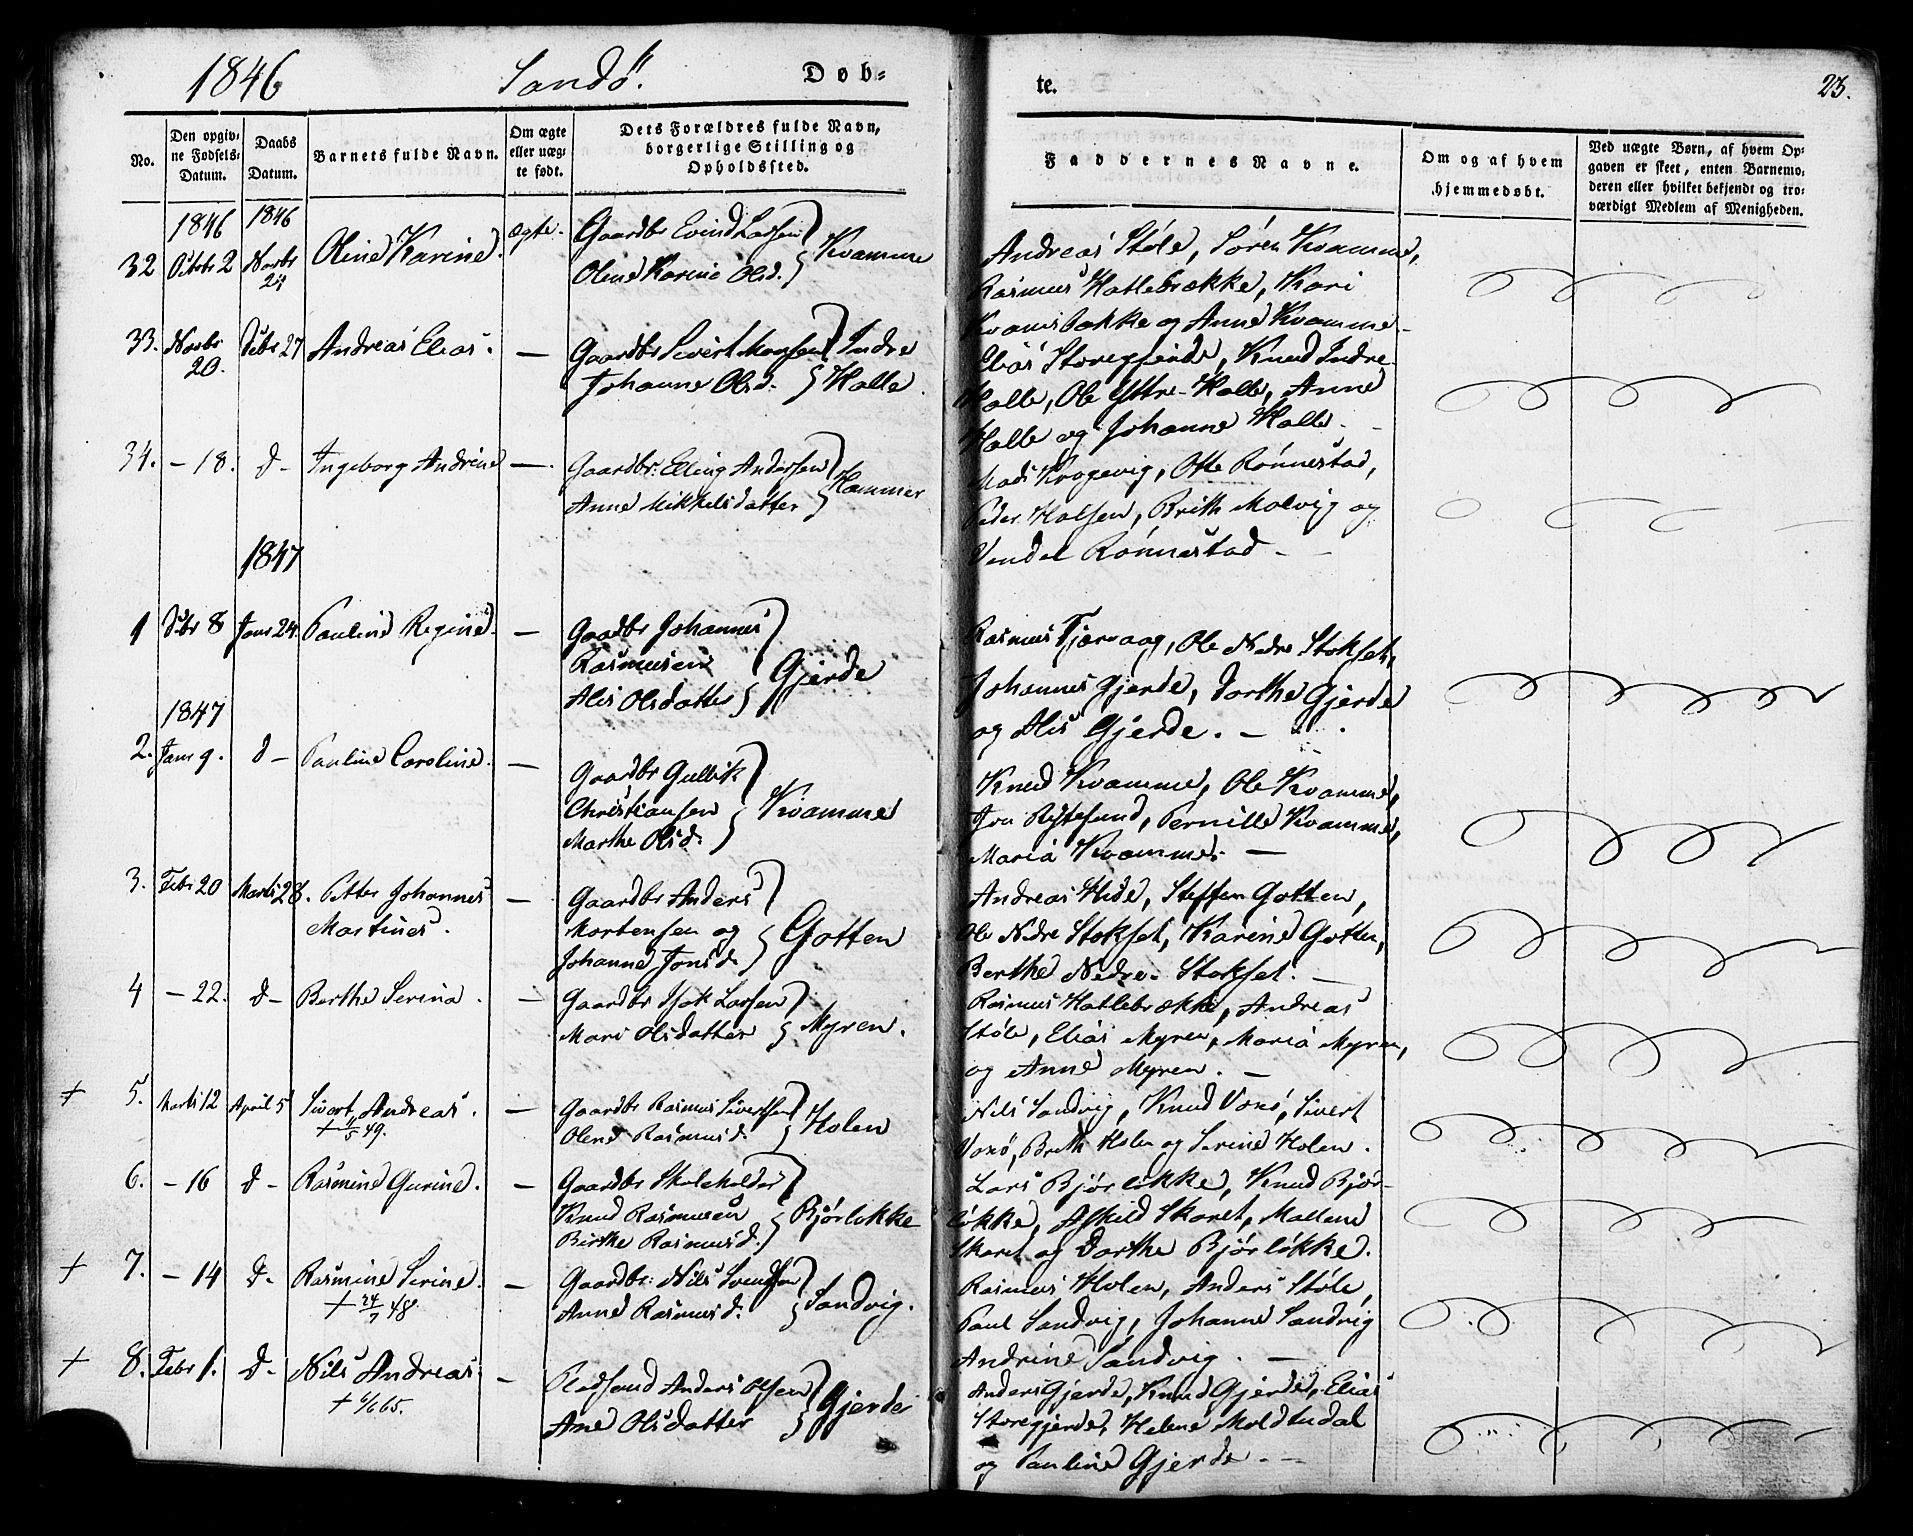 1846 Sandø. Døb-
No.
Den opgiv-
ne Fødsels-
Datum.
Daabs
Datum.
Barnets fulde Navn.
Om ægte
eller uæg-
te født.
Dets Forældres fulde Navn,
borgerlige Stilling og
Opholdssted.
1846 1846
32 Octobr 2 Novbr Oline Karine. ægte. Gaardbr Evind Larsen Kvamme
Oline Karine Olsd.
33. Novbr 20. Debr 27 Andreas Elias. — Gaardbr Sivert Monsen Indre
Johanne Olsd. Halle.
34. – 18. d– Ingeborg Andrine —. Gaardbr. Elling Andersen Hammer
Anne Mikkelsdatter
1847
1 Debr 8 Janr 24. Pauline Regine. — Gaardbr Johannes
Rasmusen Gjerde
Alis Olsdatter
1847
2. Janr 9. d– Pauline Caroline. — Gaardbr Gullik
Christiansen Kvamme
Marthe Olsd.
3. Febr 20 Marts 28. Petter Johannes — Gaardbr Anders
Martinus. Mortensen og Gotten
Johanne Jonsd.
4 – 22. d– Berthe Serina. — Gaardbr Isak Larsen
Mari Olsdatter Myren.
+ 5. Marts 12 April 5 Sivert Andreas. — Gaardbr Rasmus Sivertsen Holen
Oline Rasmusd.
6. – 16 d– Rasmine Gurine. — Gaardbr Skoleholder
Knud Rasmusen Bjørløkke
Birthe Rasmusd.
+ 7. – 14 d– Rasmine Serine. — Gaardbr: Nils Svendsen
+ 24/7 48. Anne Rasmusd. Sandvig.
+ 8. Febr 1. d– Nils Andreas. — Anders Olsen Gjerde
Ane Olsdatter
te. 23.
Faddernes Navne.
Om og af hvem
hjemmedøbt.
Ved uægte Børn, af hvem Op-
gaven er skeet, enten Barnemo-
deren eller hvilket bekjendt og tro-
værdigt Medlem af Menigheden.
Andreas Støle, Søren Kvamme,
Rasmus Hatlebrække, Kari
Kvamsbakke og Anne Kvamme–
Elias Storegjerde, Knud Indre
Halle, Ole Yttre-Halle, Anne
Halle og Johanne Halle. –
Mads Kragevig, Otte Rønnestad,
Peder Halsen, Brith Malvig og
Vendel Rønnestad –
Rasmus Tjervaag, Ole Nedre Stokset,
Johannes Gjerde, Dorthe Gjerde
og Alis Gjerde. –
Knud Kvamme, Ole Kvamme,
Jon Rystesund, Pernille Kvamme,
Maria Kvamme. —
Andreas Hide, Steffen Gotten,
Ole Nedre Stokset, Karine Gotten,
Berthe Nedre-Stokset. —
Rasmus Hatlebrække, Andreas
Støle, Elias Myren, Maria Myren,
og Anne Myren. —
Nils Sandvig, Knud Voxø, Sivert
Voxø, Brith Holen og Serine Holen.
Lars Bjørløkke, Knud Bjør-
løkke, Askild Skaret, Mallene
Skaret og Dorthe Bjørløkke.
Rasmus Holen, Anders Støle,
Paul Sandvig, Johanne Sandvig
Andrine Sandvig. —
Anders Gjerde, Knud Gjerde, Elias
Storegjerde, Helene Moldtudal
og Pauline Gjerde. —